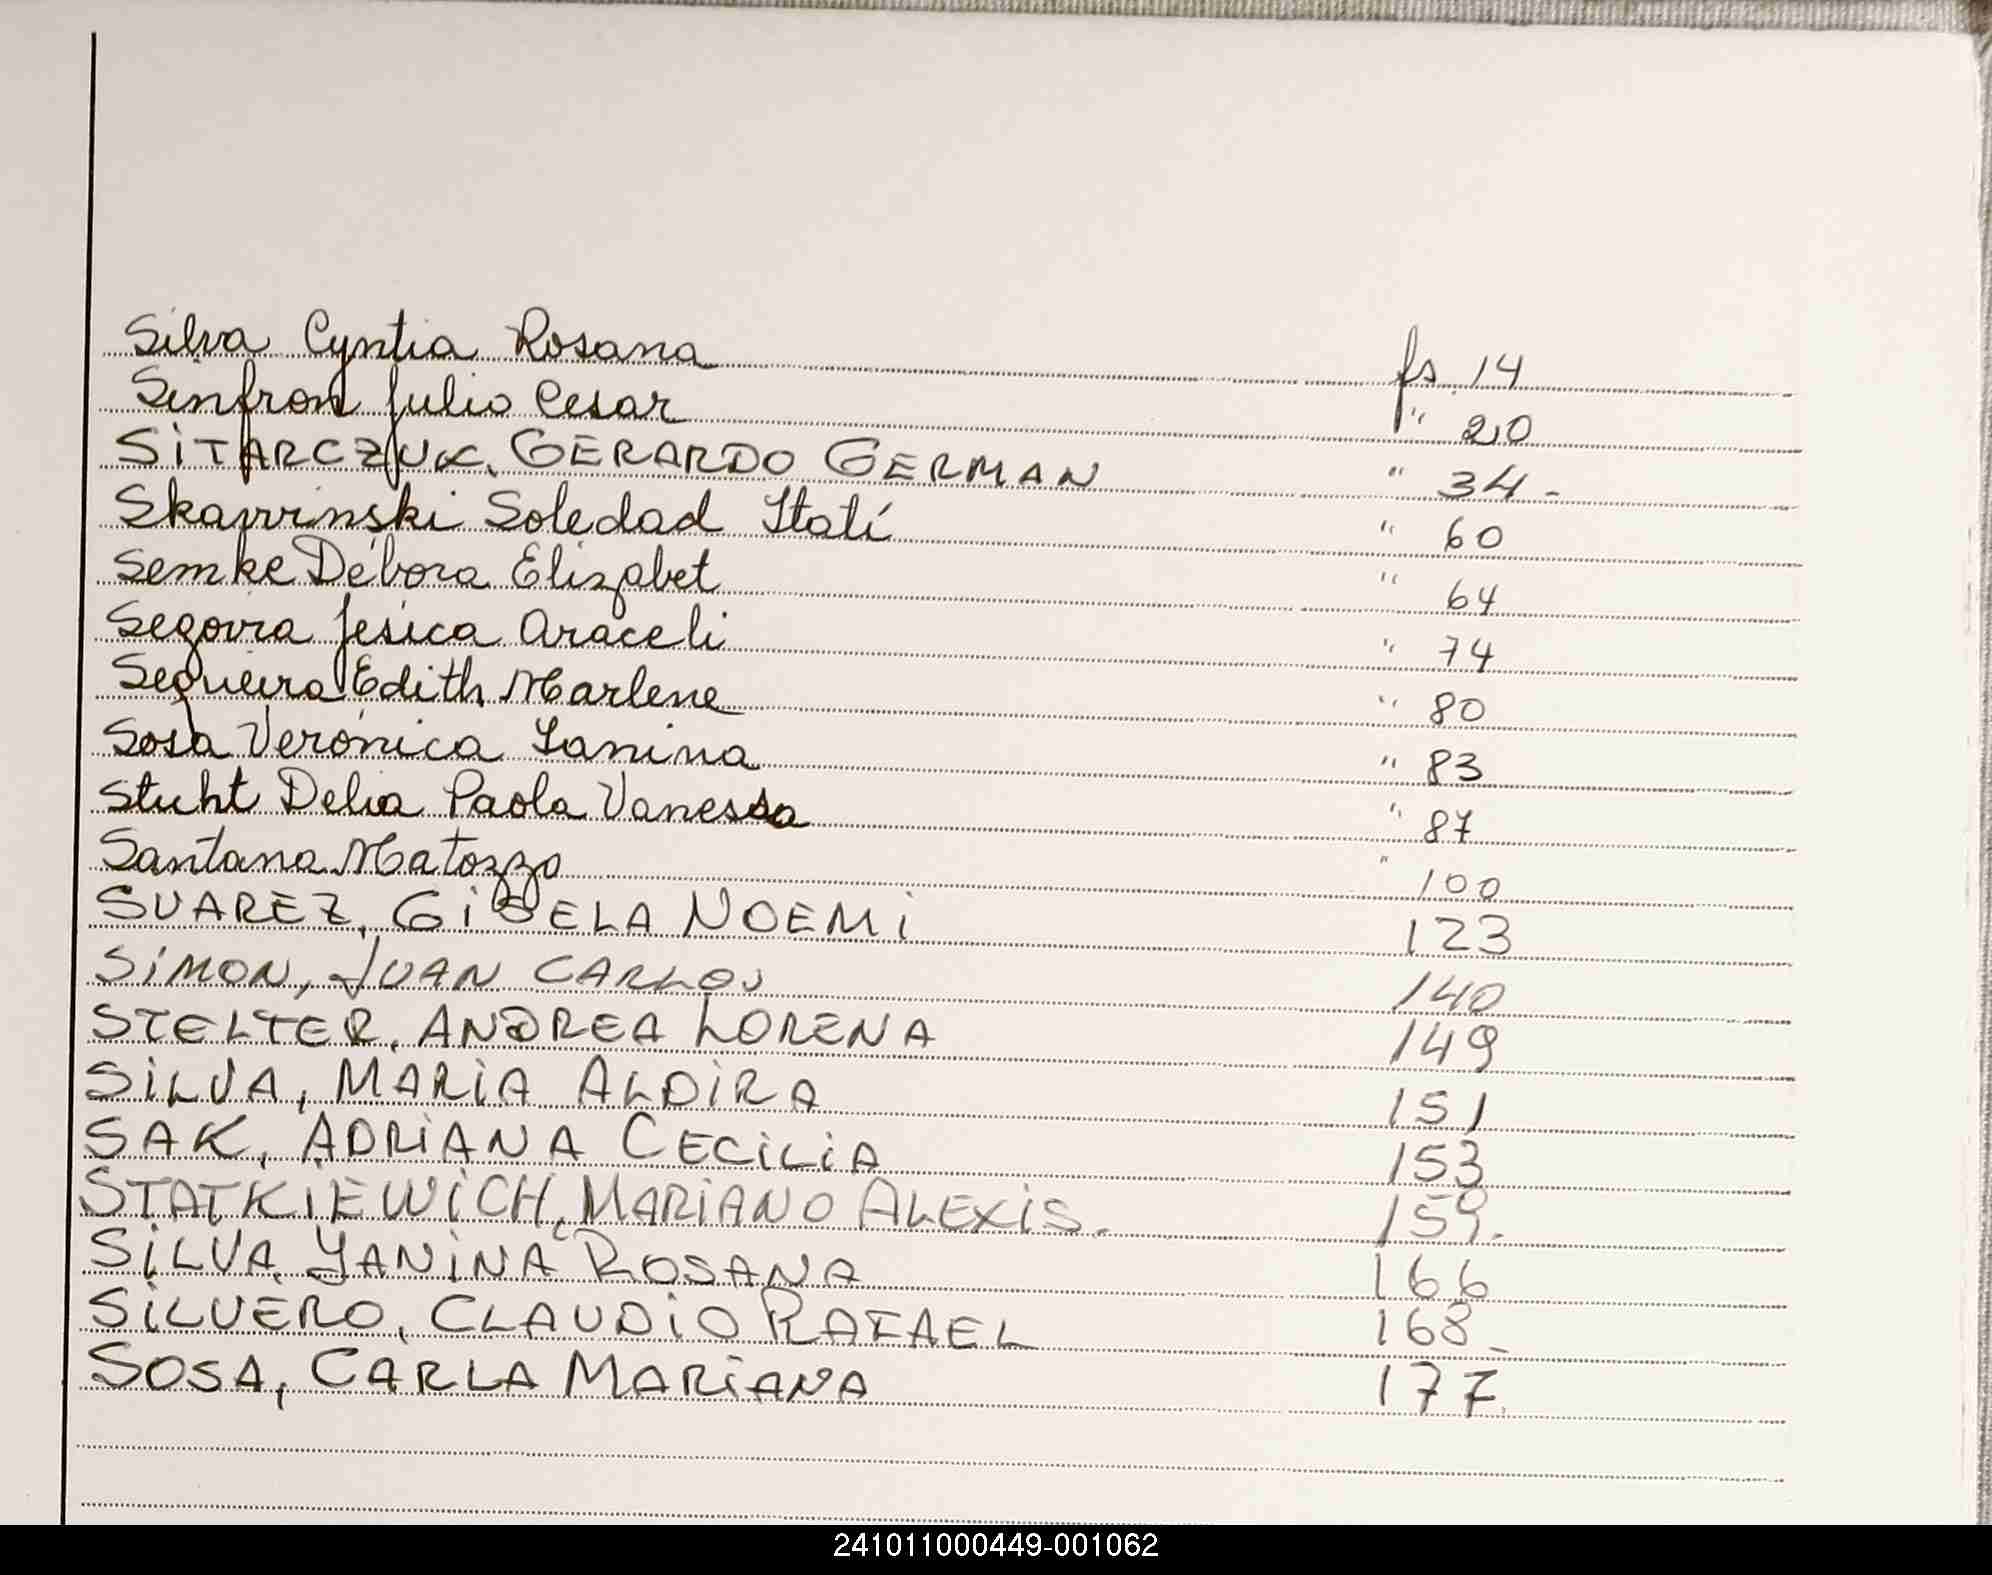 Silva Cyntia Rosana fs. 14
Sinfron Julio Cesar " 20
SITARCZUK, GERARDO GERMAN " 34-
Skavrinski Soledad Itatí " 60
Semke Débora Elizabet " 64
Segovia Jesica Araceli " 74
Sequeira Edith Marlene " 80
Sosa Verónica Yanina " 83
Stuht Delia Paola Vanessa " 87
Santana Matozzo " 100
SUAREZ, GISELA NOEMI 123
SIMON, JUAN CARLOS 140
STELTER, ANDREA LORENA 149
SILVA, MARIA ALDIRA 151
SAK, ADRIANA CECILIA 153
STATKIEWICH, MARIANO ALEXIS. 159.
SILVA, YANINA ROSANA 166
SILVERO, CLAUDIO RAFAEL 168_
SOSA, CARLA MARIANA 177
241011000449-001062